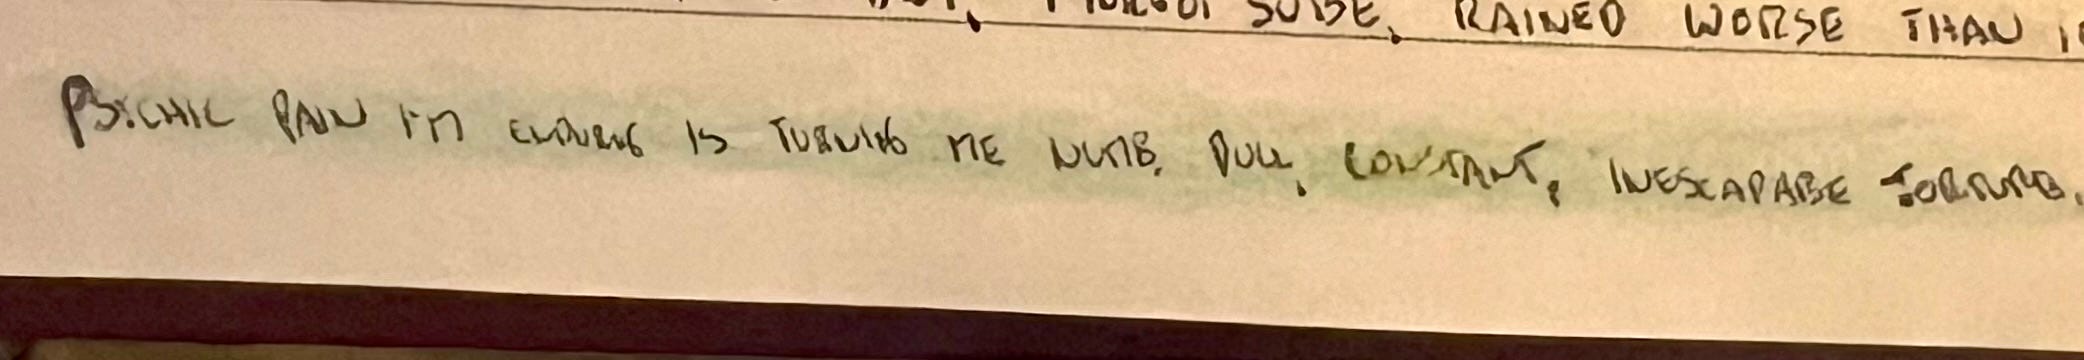 RAINED WORSE THAN
PSICHIC PAIN I'M ENDURING IS TURNING ME NUMB. DULL, CONSTANT, INESCAPABE TORTURE.